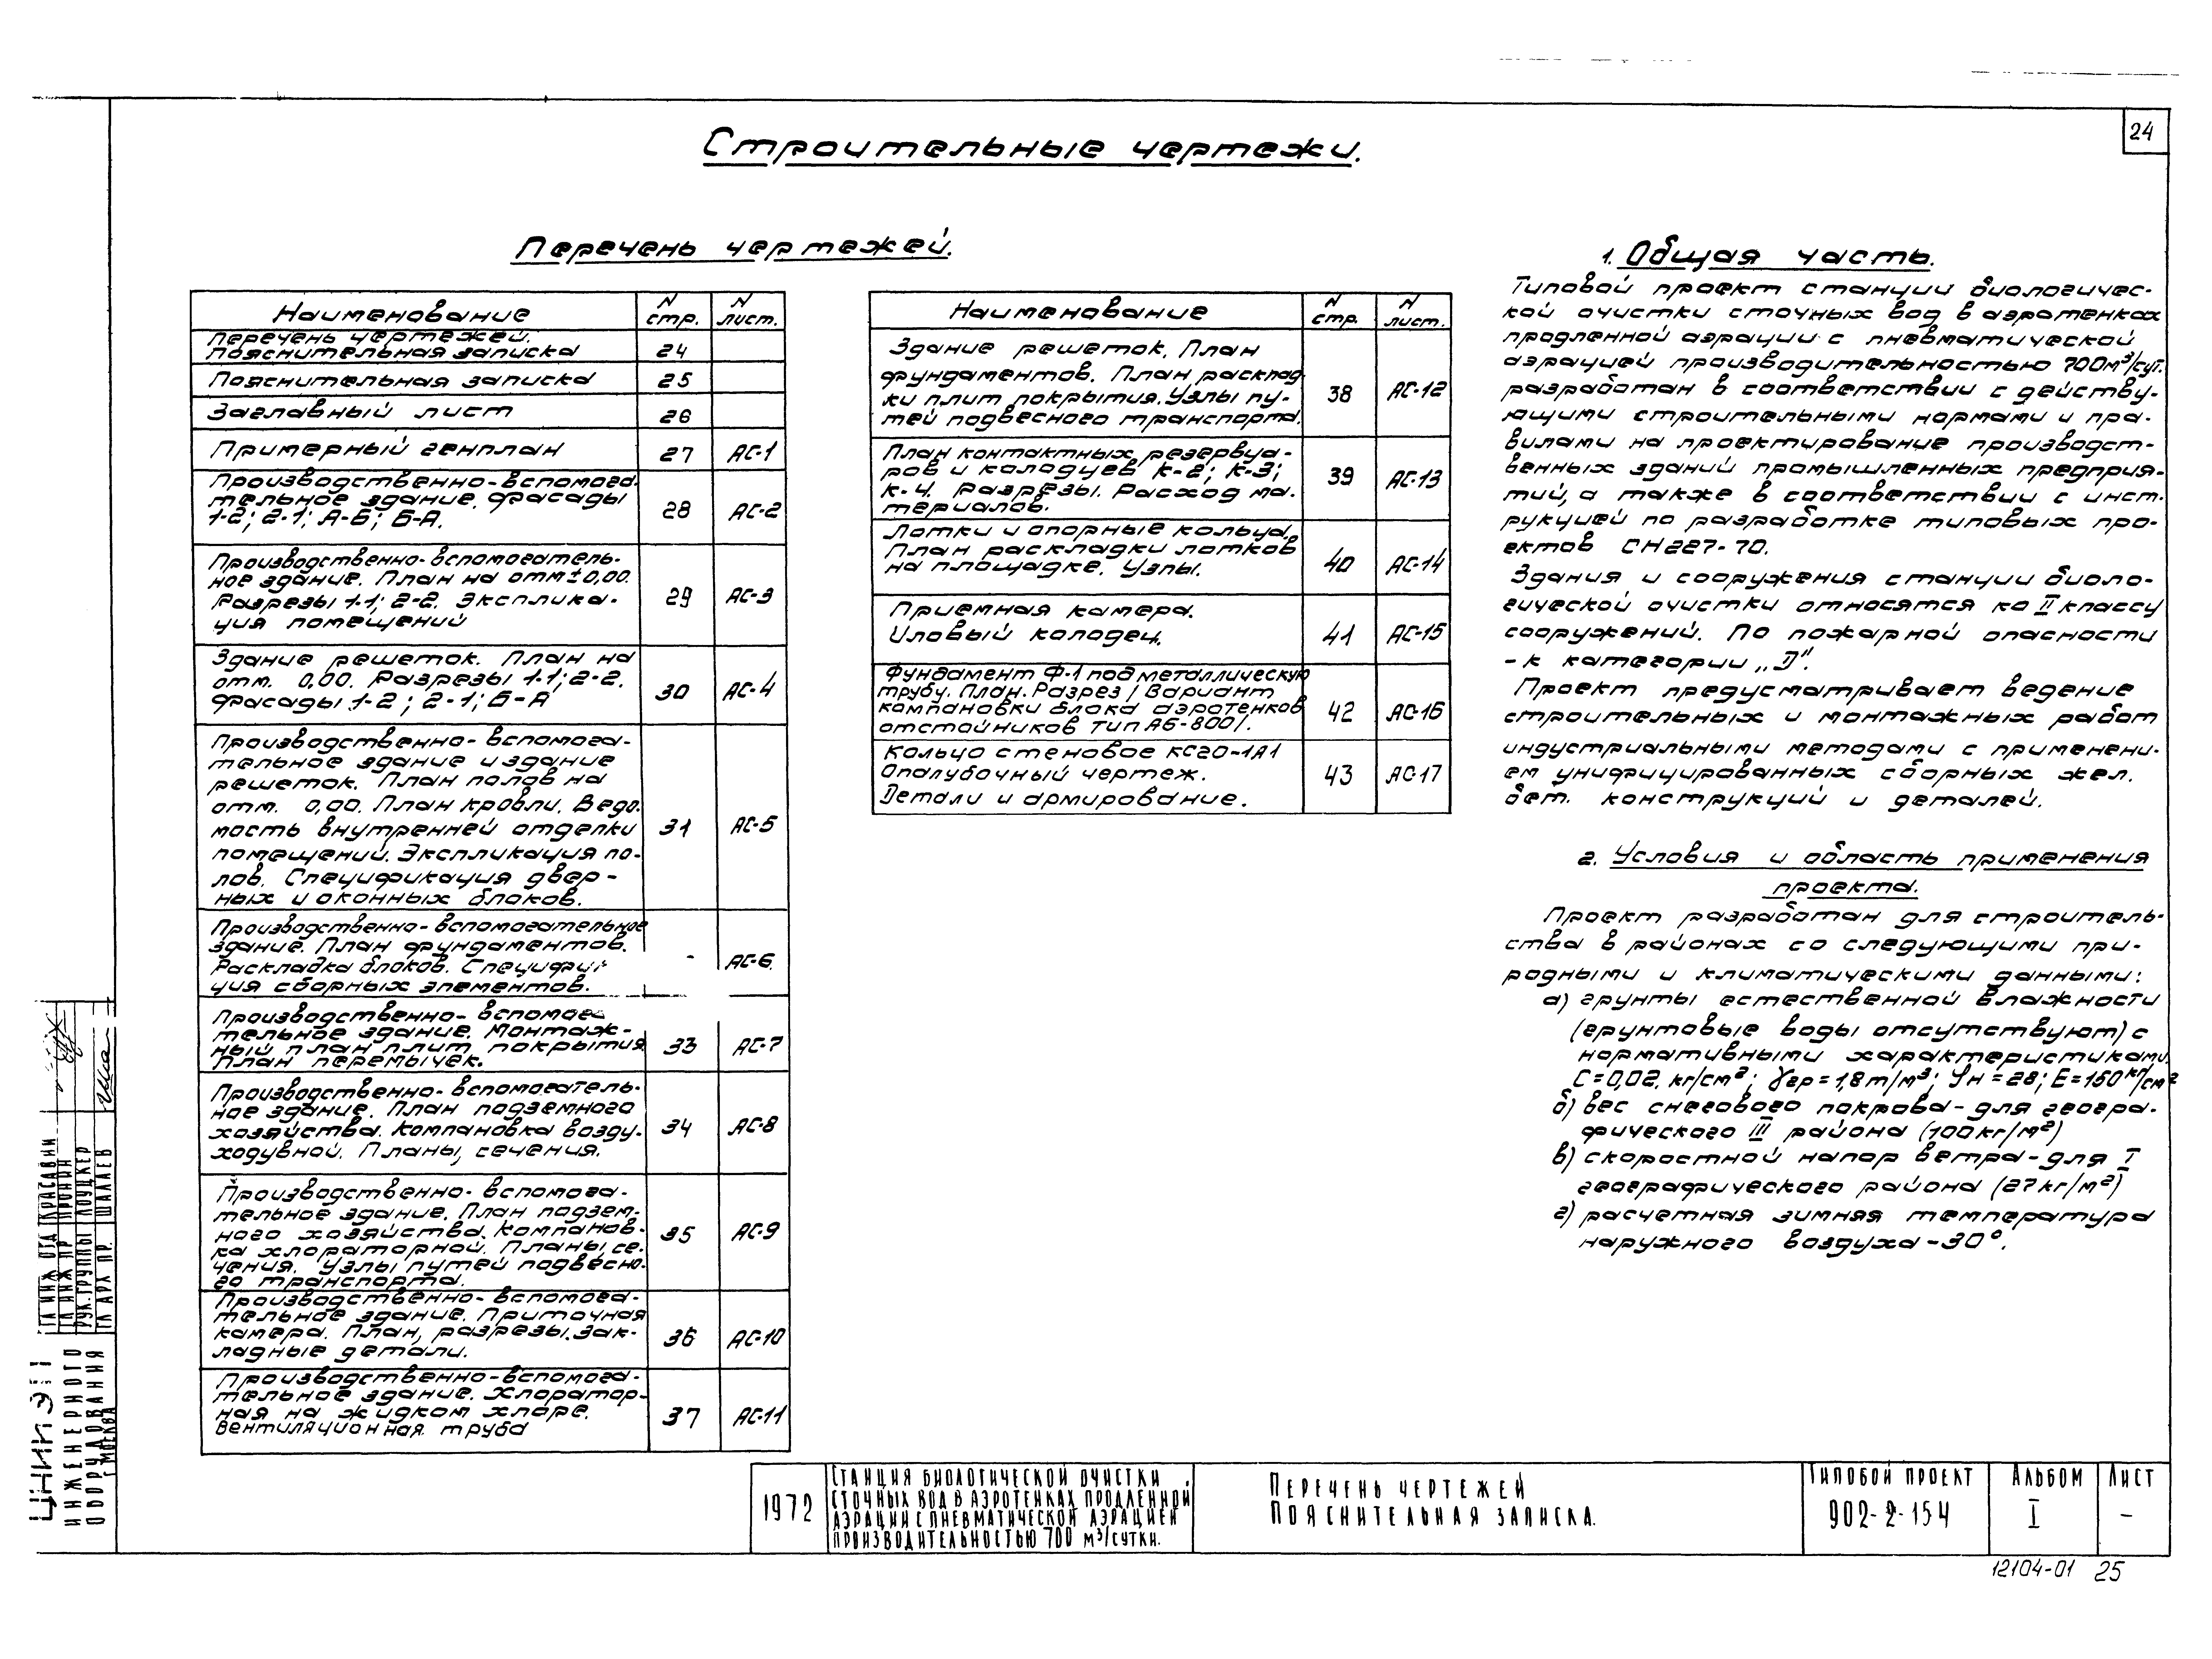 24
Строительные чертежи.
Перечень чертежей.
Наименование
N стр.
N лист.
Перечень чертежей.
Пояснительная записка
24
Пояснительная записка
25
Заглавный лист
26
Примерный генплан
27
АС-1
Производственно-вспомога-
тельное здание. Фасады
1-2; 2-1; А-Б; Б-А.
28
АС-2
Производственно-вспомогатель-
ное здание. План на отм ± 0,00.
Разрезы 1-1; 2-2. Эксплика-
ция помещений
29
АС-3
Здание решеток. План на
отм. 0,00. Разрезы 1-1; 2-2.
Фасады 1-2; 2-1; Б-А
30
АС-4
Производственно-вспомога-
тельное здание и здание
решеток. План полов на
отм. 0,00. План кровли. Ведо-
мость внутренней отделки
помещений. Экспликация по-
лов. Спецификация двер-
ных и оконных блоков.
31
АС-5
Производственно-вспомогательное
здание. План фундаментов.
Раскладка блоков. Специфи
ция сборных элементов.
АС-6
Производственно-вспомог
тельное здание. Монтаж-
ный план плит покрытия
План перемычек.
33
АС-7
Производственно-вспомогатель-
ное здание. План подземного
хозяйства. Компановка возду-
ходувной. Планы, сечения.
34
АС-8
Производственно-вспомога-
тельное здание. План подзем-
ного хозяйства. Компанов-
ка хлораторной. Планы, се-
чения. Узлы путей подвесно-
го транспорта.
35
АС-9
Производственно-вспомога-
тельное здание. Приточная
камера. План, разрезы. Зак-
ладные детали.
36
АС-10
Производственно-вспомога-
тельное здание. Хлоратор-
ная на жидком хлоре.
Вентиляционная труба
37
АС-11
Наименование
N стр.
N лист.
Здание решеток. План
фундаментов. План расклад
ки плит покрытия. Узлы пу-
тей подвесного транспорта.
38
АС-12
План контактных резервуа-
ров и колодцев К-2; К-3;
К-4. Разрезы. Расход ма-
териалов.
39
АС-13
Лотки и опорные кольца.
План раскладки лотков
на площадке. Узлы.
40
АС-14
Приемная камера.
Иловый колодец.
41
АС-15
Фундамент Ф-1 под металлическую
трубу. План. Разрез /Вариант
кампановки блока аэротенков
отстойников тип АБ-800/.
42
АС-16
Кольцо стеновое КС20-1А1
Опалубочный чертеж.
Детали и армирование.
43
АС-17
1. Общая часть.
Типовой проект станции биологичес-
кой очистки сточных вод в аэротенках
продленной аэрации с пневматической
аэрацией производительностью 700м³/сут.
разработан в соответствии с действу-
ющими строительными нормами и пра-
вилами на проектирование производст-
венных зданий промышленных предприя-
тий, а также в соответствии с инст-
рукцией по разработке типовых про-
ектов СН227-70.
Здания и сооружения станции биоло-
гической очистки относятся ко II классу
сооружений. По пожарной опасности
- к категории „Д".
Проект предусматривает ведение
строительных и монтажных работ
индустриальными методами с применени-
ем унифицированных сборных жел.
бет. конструкций и деталей.
2. Условия и область применения
проекта.
Проект разработан для строитель-
ства в районах со следующими при-
родными и климатическими данными:
а) грунты естественной влажности
(грунтовые воды отсутствуют) с
нормативными характеристиками
С=0,02. кг/см²; γгр=1,8т/м³; φн=28; Е=150кг/см²
б) вес снегового покрова-для геогра-
фического III района (100кг/м²)
в) скоростной напор ветра-для I
географического района (27кг/м²)
г) расчетная зимняя температура
наружного воздуха-30°.
ЦНИИЭП
ИНЖЕНЕРНОГО
ОБОРУДОВАНИЯ
Г МОСКВА
ГЛ ИНЖ ОТД КРАСАВИН
ГЛ ИНЖ ПР ПРОНИН
РУК. ГРУППЫ ЛОУЦКЕР
ГЛ АРХ ПР. ШАЛАЕВ
1972
СТАНЦИЯ БИОЛОГИЧЕСКОЙ ОЧИСТКИ
СТОЧНЫХ ВОД В АЭРОТЕНКАХ ПРОДЛЕННОЙ
АЭРАЦИИ С ПНЕВМАТИЧЕСКОЙ АЭРАЦИЕЙ
ПРОИЗВОДИТЕЛЬНОСТЬЮ 700 м³/СУТКИ.
ПЕРЕЧЕНЬ ЧЕРТЕЖЕЙ
ПОЯСНИТЕЛЬНАЯ ЗАПИСКА.
ТИПОВОЙ ПРОЕКТ
902-2-154
АЛЬБОМ
I
ЛИСТ
-
12104-01 25